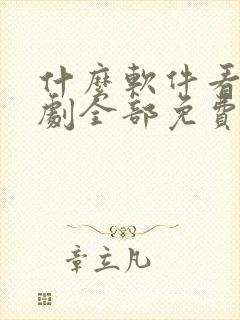 什麼軟件看
劇全部免費
章立凡